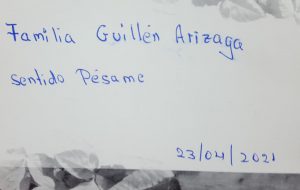 Familia Guillén Arizaga
sentido Pésame
23/04/2021